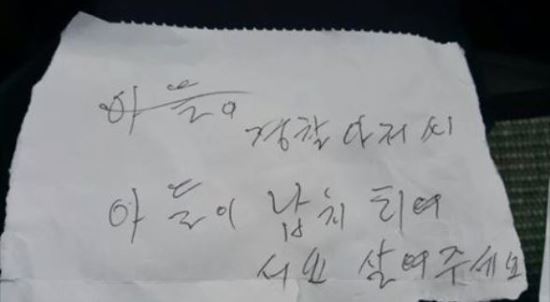 아들이
경찰 아저씨
아들이 납치 되여
서요 살여주세요